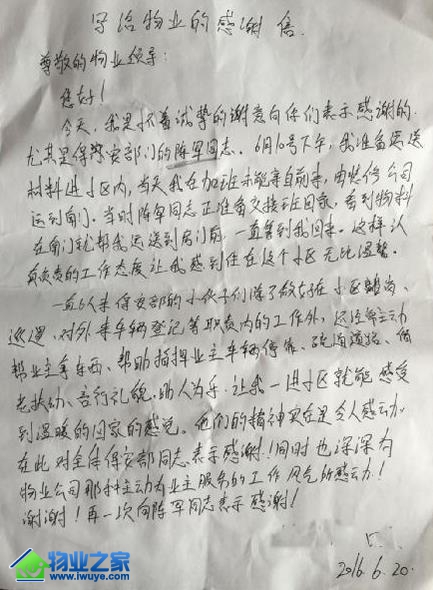 写给物业的感谢信
尊敬的物业领导:
您好!
今天,我是怀着诚挚的谢意向你们表示感谢的.
尤其是保安部门的陈军同志。6月10号下午,我准备运送
材料进小区内,当天我在加班未能亲自前来,由装修公司
运到南门。当时陈军同志正准备交接班回家,看到物料
在南门就帮我运送到房门前,一直等到我回来。这样认
真负责的工作态度让我感到住在这个小区无比温馨。
一直以来保安部的小伙子们除了做好在小区站岗、
巡逻、对外来车辆登记等职责内的工作外,还经常主动
帮业主拿东西、帮助指挥业主车辆停靠、疏通道路、
老扶幼、言行礼貌.助人为乐.让我一进小区就能感受
到温暖的回家的感觉。他们的精神实在是令人感动.
在此对全体保安部同志表示感谢!同时也深深为
物业公司那种主动为业主服务的工作风气所感动!
谢谢!再一次向陈军同志表示感谢!
2016.6.20.
物业之家
www.iwuye.com